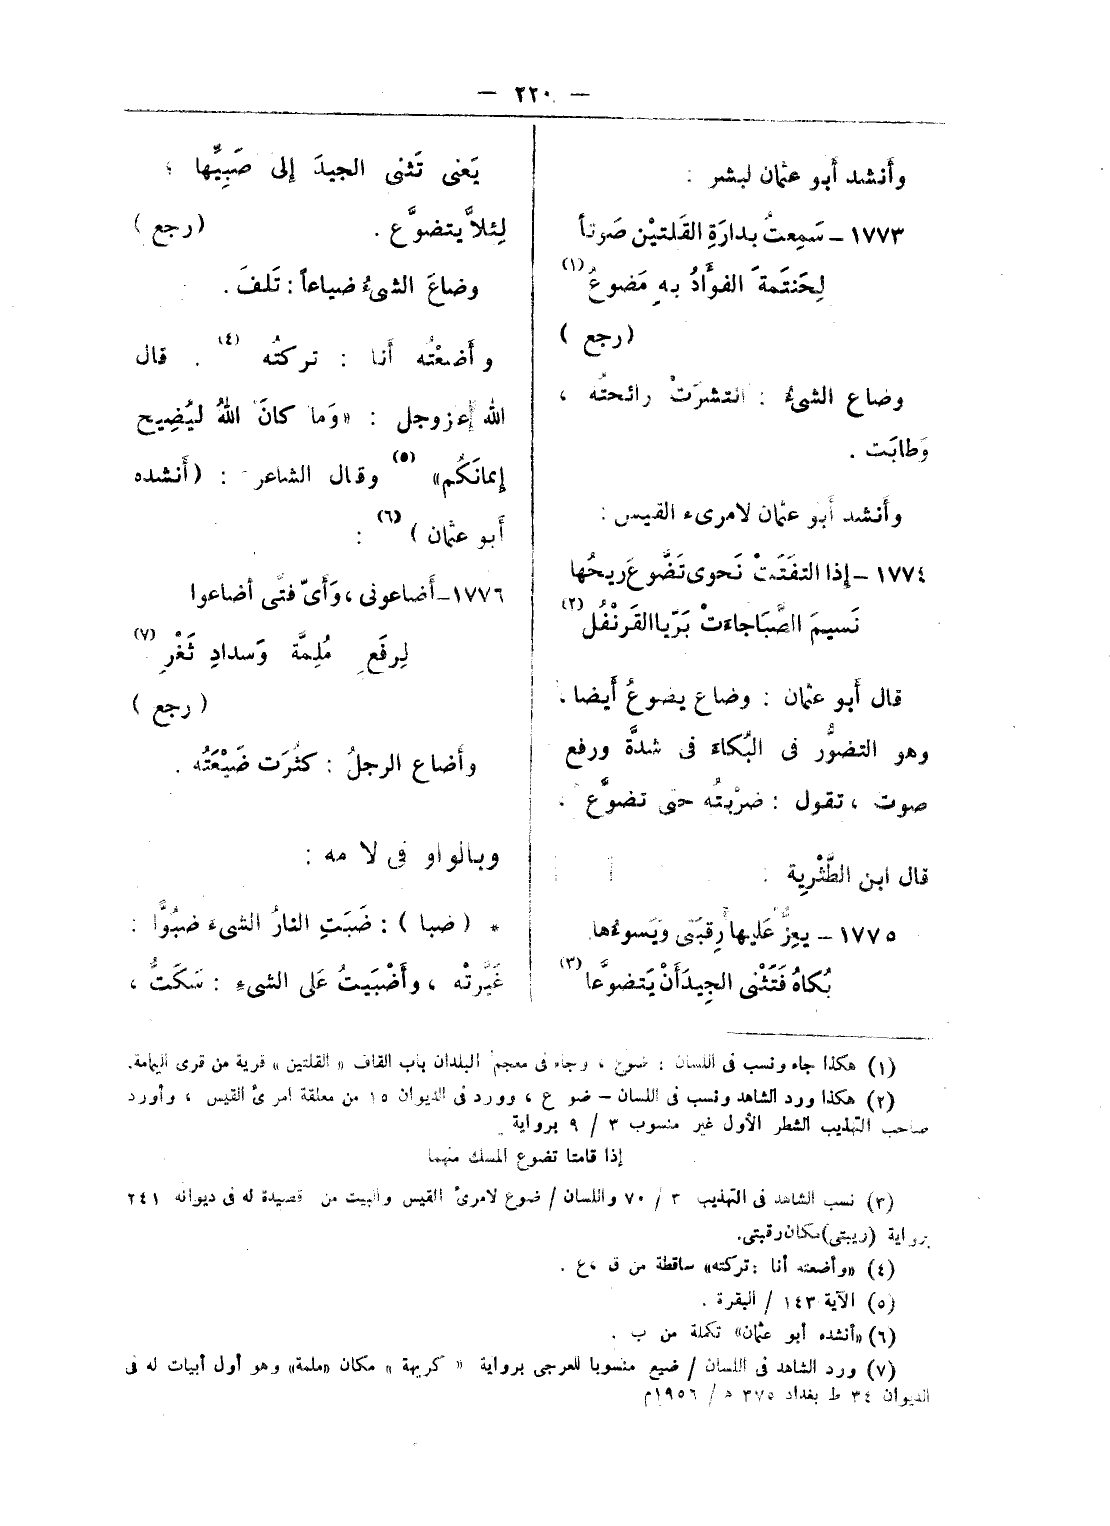 — ٢٢٠ —
وأنشد أبو عثمان لبشر :
١٧٧٣ – سَمِعتُ بدارَةِ القَلتيْن صَوتاً
لِحَنتَمةَ الفؤَادُ بهِ مَضوعُ (١)
(رجع )
وضاع الشىءُ : انتشرَتْ رائحتُه ،
وَطابَت .
وأنشد أبو عثمان لامرىء القيس :
١٧٧٤ – إذا التفَتَتْ نَحوى تَضَّوعَ ريحُها
نَسيمَ الصَّبَا جاءَتْ بَريَّا القَرنْفُلِ (٢)
قال أبو عثمان : وضاع يضوعُ أيضا ،
وهو التضوُّر فى البُكاءَ فى شدَّة ورفع
صوت ، تقول : ضرْبتُه حتى تضوَّع .
قال ابن الطَّثْرِية :
١٧٧٥ – يعِزُّ عَليها رِقبَتى ويَسوءُها
بُكاهُ فَتَثْنى الجِيدَ أنْ يَتضوَّعا (٣)
يَعنى تَثنى الجيدَ إلى صَبِيِّها ؛
لِئلاَّ يتضوَّع . (رجع )
وضاعَ الشىءُ ضياعاً : تَلفَ .
وأضعْتُه أنا : تركتُه (٤) . قال
الله عزوجل : «وَما كانَ اللهُ ليُضِيع
إيمانَكُم» (٥) وقال الشاعر : (أنشده
أبو عثمان ) (٦) :
١٧٧٦ – أضاعونى ، وَأىّ فتًى أضاعوا
لِرفَعِ مُلِمَّة وَسدادِ ثَغْرِ (٧)
( رجع )
وأضاع الرجلُ : كثُرَت ضَيْعَتُه .
وبالواو فى لامه :
* ( ضبا ) : ضَبَتِ النارُ الشىءَ ضبُوًّا :
غَيَّرتْه ، وأضْبَيتُ عَلى الشىءِ : سَكَتُّ ،
(١) هكذا جاء ونسب فى اللسان : ضوع ، وجاء فى معجم البلدان باب القاف « القلتين » قرية من قرى اليمامة.
(٢) هكذا ورد الشاهد ونسب فى اللسان – ضوع ، وورد فى الديوان ١٥ من معلقة امرئ القيس ، وأورد
صاحب التهذيب الشطر الأول غير منسوب ٣ / ٩ برواية
إذا قامتا تضوع المسك منهما
(٣) نسب الشاهد فى التهذيب ٣ / ٧٠ واللسان / ضوع لامرئ القيس والبيت من قصيدة له فى ديوانه ٢٤١
برواية (ريبتى) مكان رقبتى.
(٤) «وأضعته أنا : تركته» ساقطة من ق ، ع .
(٥) الآية ١٤٣ / البقرة .
(٦) «أنشده أبو عثمان» تكملة من ب .
(٧) ورد الشاهد فى اللسان / ضيع منسوبا للعرجى برواية « كريهة » مكان «ملمة» وهو أول أبيات له فى
الديوان ٣٤ ط بغداد ٣٧٥ ه / ١٩٥٦م